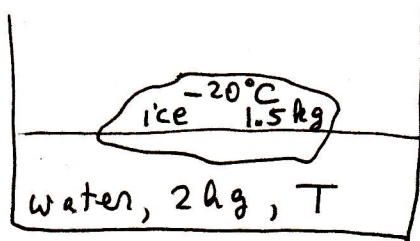 -20°C
ice 1.5 kg
water, 2 kg, T